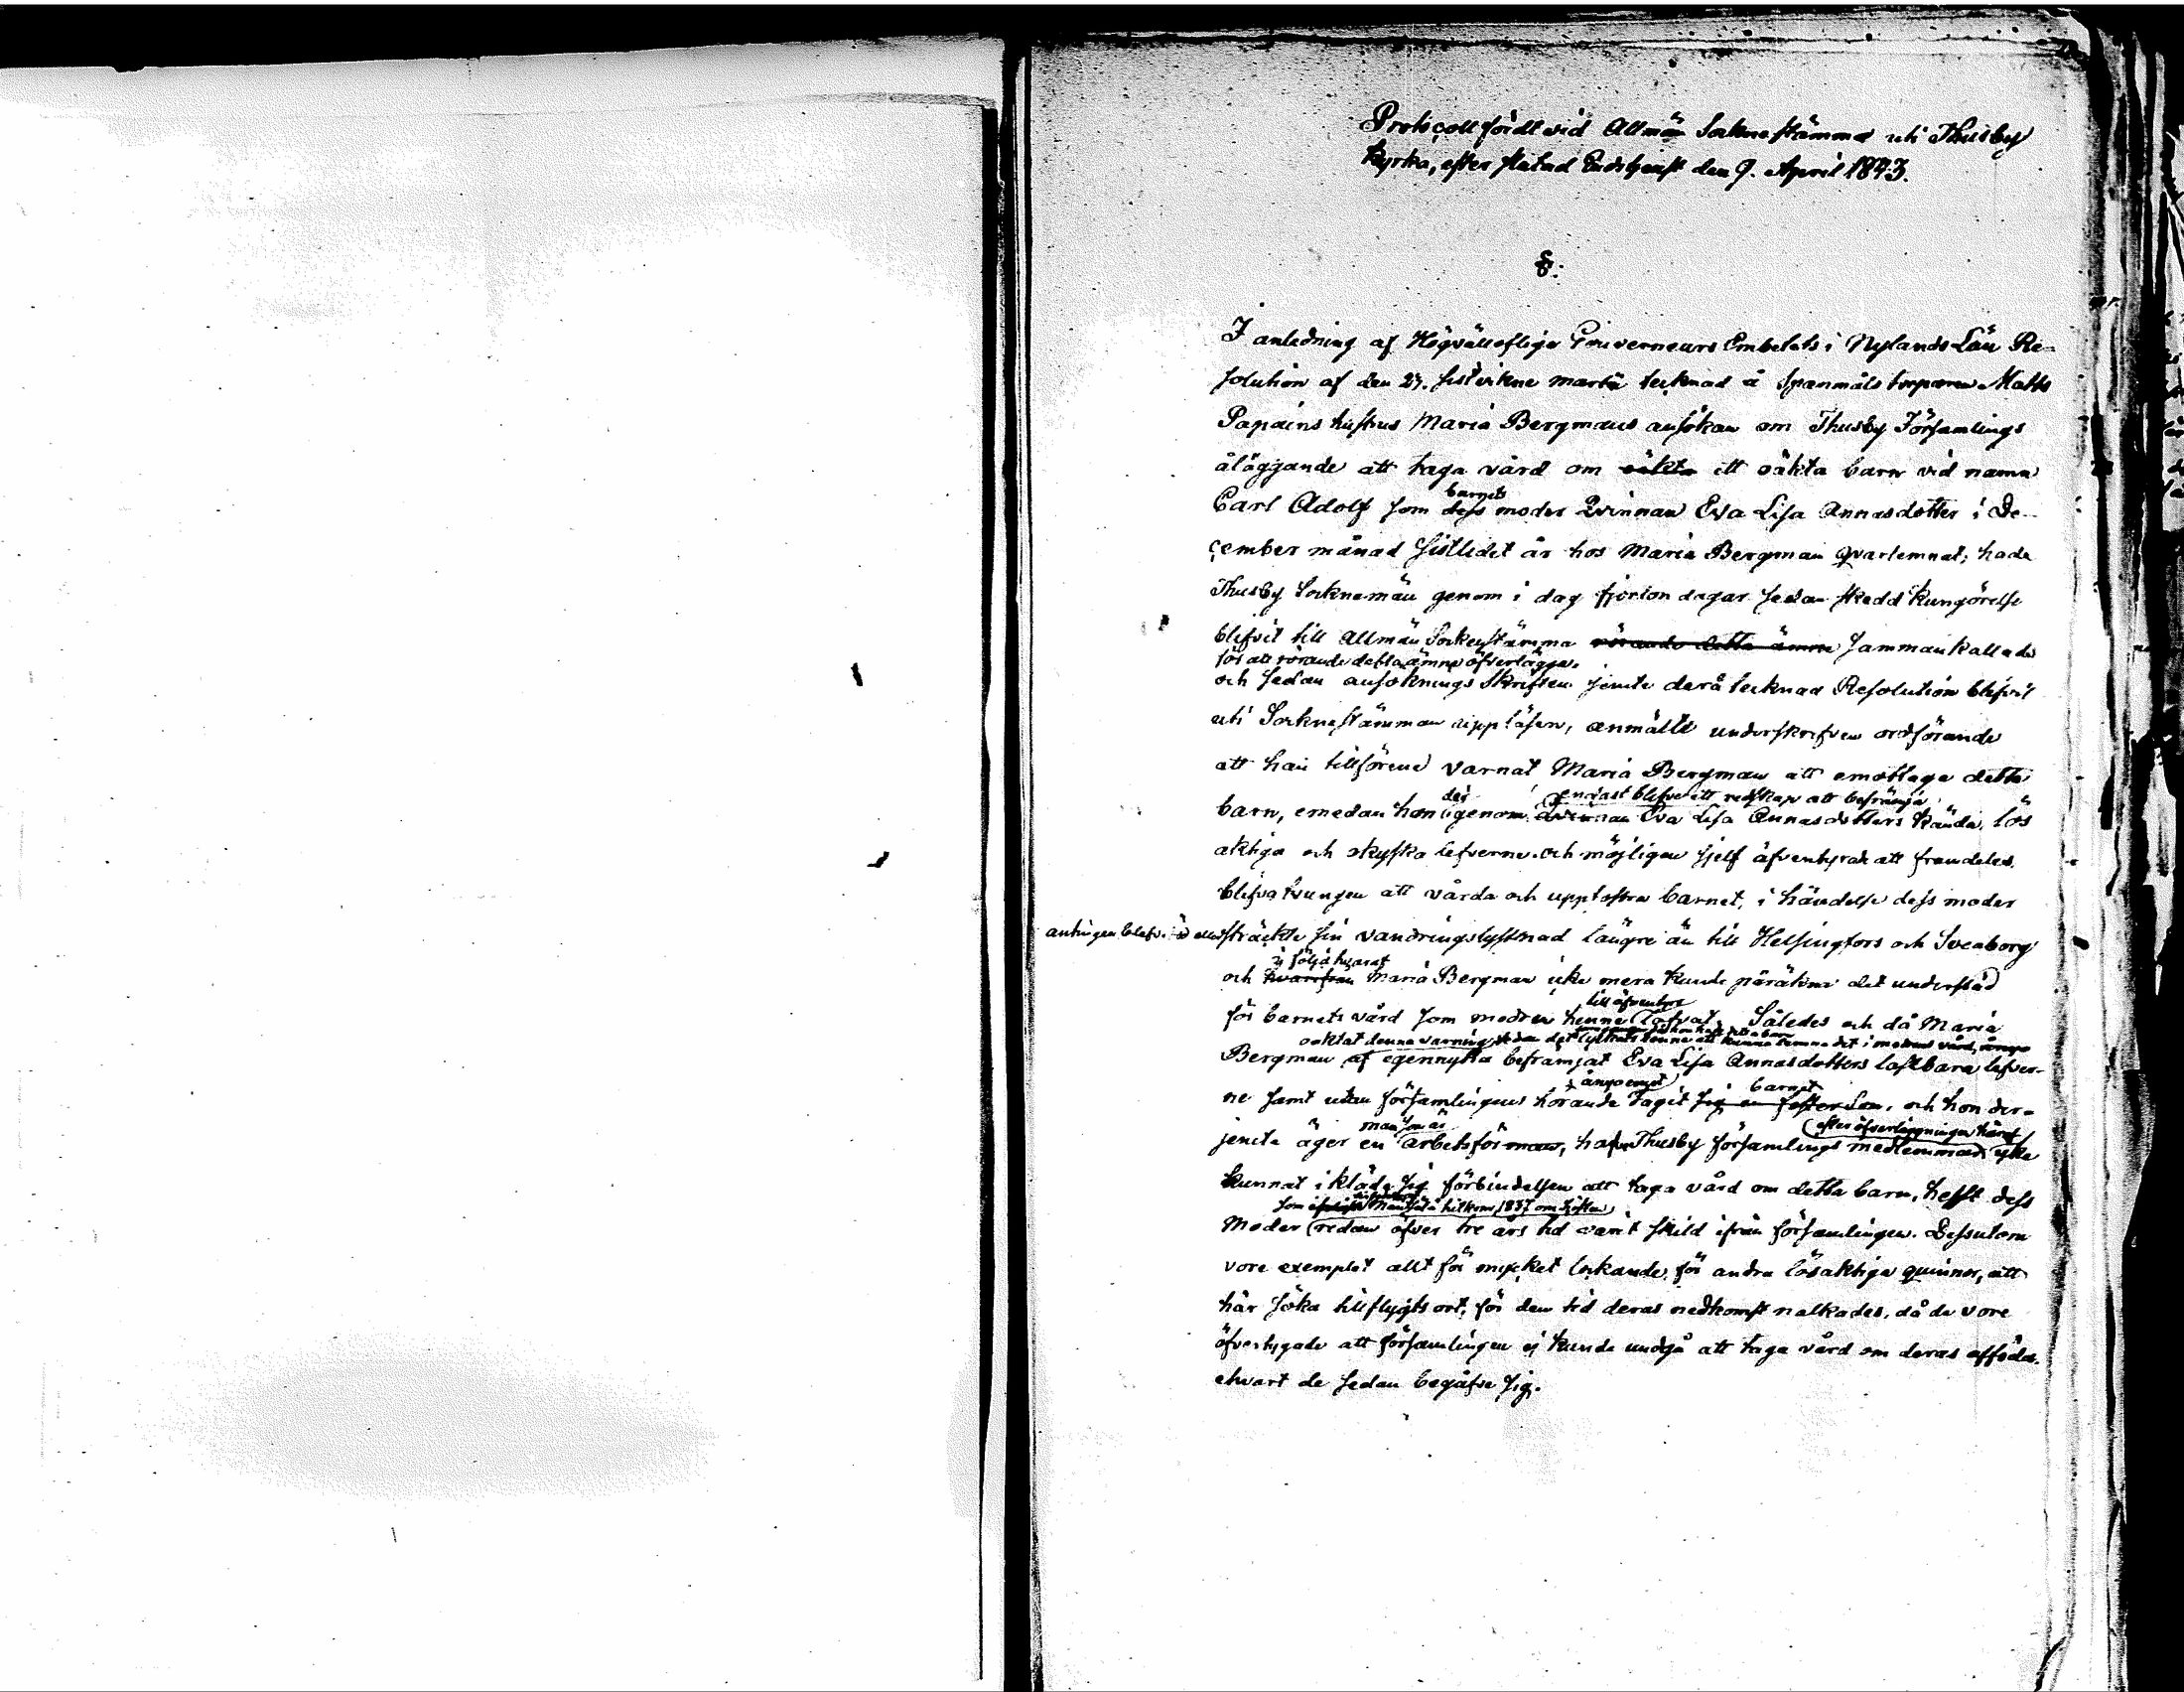 Protocoll fördt vid Allmän Sockne stämma uti Thusby
Kyrka, efter slutad Gudstjenst den 9. April 1843.
§:
I anledning af Högvälloflige Gouverneurs Embetets i Nylands Län Re-
solution af den 27. sistvikne martii tecknad å Spanmåls torparen Matts
Papains hustrus Maria Bergmans ansökan om Thusby Församlings
åläggande att taga vård om oäkta ett oäkta barn vid namn
barnets
Carl Adolf som dess moder Qvinnan Eva Lisa Annasdotter i De-
cember månad sistledet år hos Maria Bergman qvarlemnat; hade
Thusby Socknemän genom i dag fjorton dagar sedan skedd kungörelse
blifvit till Allmän Sockenstämma rörande detta ämne sammankallade
för att rörande detta ämne öfverlägga.
och sedan ansöknings Skriften jemte derå tecknad Resolution blifvit
uti Socknestämman uppläsen, anmälte underskrefven ordförande
att han tillförene varnat Maria Bergman att emottaga detta
der endast blefve ett redskap att befrämja
barn, emedan hon igenom qvinnan Eva Lisa Annasdotters kända, lös
aktiga och okyska lefverne och möjligen sjelf äfventyrade att framdeles
blifva tvungen att vårda och uppfostra barnet, i händelse dess moder
antingen blefve död eller sträckte sin vandringslystnad längre än till Helsingfors och Sveaborg
i följd hvaraf
och hvarifrån Maria Bergman icke mera kunde påräkna det understöd
till äfventyrs
för barnets vård som modren henne lofvat. Således och då Maria
oaktat denna varning
Bergman af egennytta befrämjat Eva Lisa Annasdotters lastbara lefver-
barnet
ne samt utan församlingens hörande tagit sig en fosterson, och hon der-
man som är efter öfverläggningen häraf
jemte äger en arbetsför man, hafva Thusby församlings medlemmar icke
kunnat ikläda sig förbindelsen att taga vård om detta barn, helst dess
Moder redan öfver tre års tid varit skild ifrån församlingen. Dessutom
vore exemplet allt för mycket lockande för andra lösaktiga quinnor, att
här söka tillflygts ort, för den tid deras nedkomst nalkades, då de vore
öfvertygade att församlingen ej kunde undgå att taga vård om deras afföda,
ehvart de sedan begåfve sig.